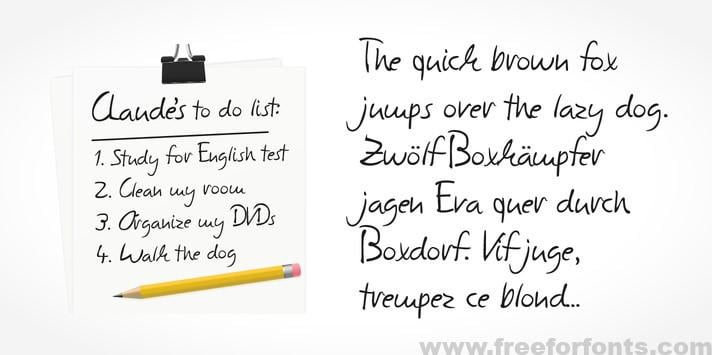 Claude's to do list:
1. Study for English test
2. Clean my room
3. Organize my DVDs
4. Walk the dog
The quick brown fox
jumps over the lazy dog.
Zwölf Boxkämpfer
jagen Eva quer durch
Boxdorf. Vif juge,
trempez ce blond...
www.freeforfonts.com